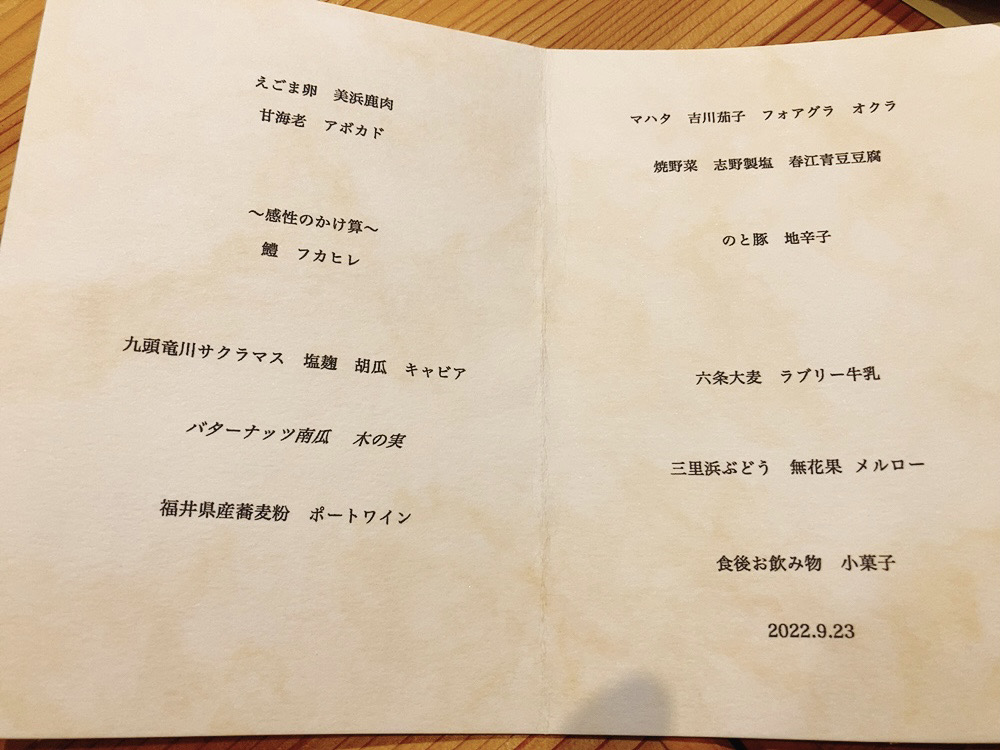 えごま卵　美浜鹿肉
甘海老　アボカド
～感性のかけ算～
鱧　フカヒレ
九頭竜川サクラマス　塩麹　胡瓜　キャビア
バターナッツ南瓜　木の実
福井県産蕎麦粉　ポートワイン
マハタ　吉川茄子　フォアグラ　オクラ
焼野菜　志野製塩　春江青豆豆腐
のと豚　地辛子
六条大麦　ラブリー牛乳
三里浜ぶどう　無花果　メルロー
食後お飲み物　小菓子
2022.9.23